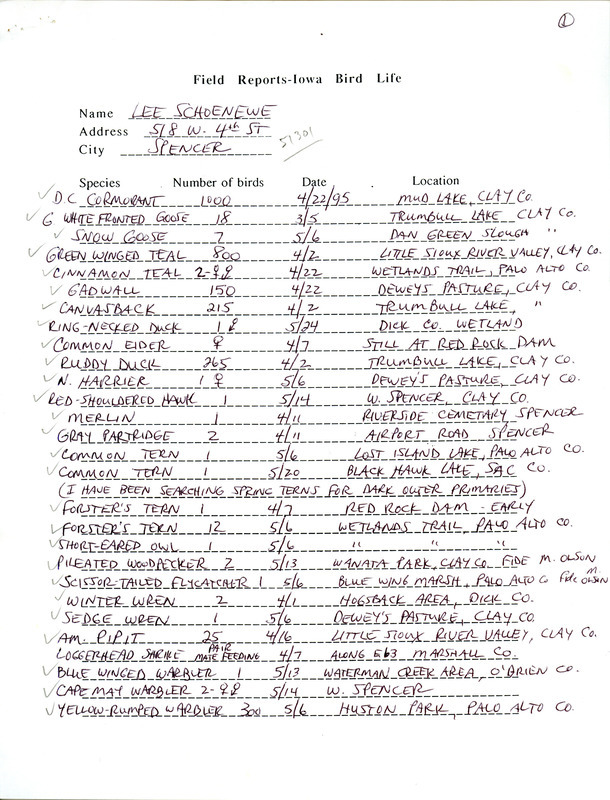 ①
Field Reports-Iowa Bird Life
Name LEE SCHOENEWE
Address 518 W. 4th ST
City SPENCER 51301
Species Number of birds Date Location
✓ D.C. CORMORANT 1000 4/22/95 MUD LAKE, CLAY CO.
✓ G. WHITE FRONTED GOOSE 18 3/5 TRUMBULL LAKE CLAY CO.
✓ SNOW GOOSE 7 5/6 DAN GREEN SLOUGH "
✓ GREEN WINGED TEAL 800 4/2 LITLE SIOUX RIVER VALLEY, CLAY CO.
✓ CINNAMON TEAL 2-♂♀ 4/22 WETLANDS TRAIL, PALO ALTO CO.
✓ GADWALL 150 4/22 DEWEY'S PASTURE, CLAY CO.
✓ CANVASBACK 215 4/2 TRUMBULL LAKE, "
✓ RING-NECKED DUCK 1 ♂ 5/24 DICK CO. WETLAND
✓ COMMON EIDER ♀ 4/7 STILL AT RED ROCK DAM
✓ RUDDY DUCK 265 4/2 TRUMBULL LAKE, CLAY CO.
✓ N. HARRIER 1 ♀ 5/6 DEWEY'S PASTURE, CLAY CO.
✓ RED-SHOULDERED HAWK 1 5/14 W. SPENCER CLAY CO.
✓ MERLIN 1 4/11 RIVERSIDE CEMETARY, SPENCER
✓ GRAY PARTRIDGE 2 4/11 AIRPORT ROAD SPENCER
✓ COMMON TERN 1 5/6 LOST ISLAND LAKE, PALO ALTO CO.
✓ COMMON TERN 1 5/20 BLACK HAWK LAKE, SAC CO.
(I HAVE BEEN SEARCHING SPRING TERNS FOR DARK OUTER PRIMARIES)
✓ FORSTER'S TERN 1 4/7 RED ROCK DAM - EARLY
✓ FORSTER'S TERN 12 5/6 WETLANDS TRAIL, PALO ALTO CO.
✓ SHORT-EARED OWL 1 5/6 " " "
✓ PILEATED WOODPECKER 2 5/13 WANATA PARK, CLAY CO FIDE M. OLSON
✓ SCISSOR-TAILED FLYCATCHER 1 5/6 BLUE WING MARSH, PALO ALTO CO FIDE M. OLSON
✓ WINTER WREN 2 4/1 HOGSBACK AREA, DICK CO.
✓ SEDGE WREN 1 5/6 DEWEY'S PASTURE, CLAY CO.
✓ AM. PIPIT 25 4/16 LITTLE SIOUX RIVER VALLEY, CLAY CO.
LOGGERHEAD SHRIKE PAIR MATE FEEDING 4/7 ALONG E63 MARSHALL CO.
✓ BLUE WINGED WARBLER 1 5/13 WATERMAN CREEK AREA, O'BRIEN CO.
✓ CAPE MAY WARBLER 2-♂♀ 5/14 W. SPENCER
✓ YELLOW-RUMPED WARBLER 300 5/6 HUSTON PARK, PALO ALTO CO.